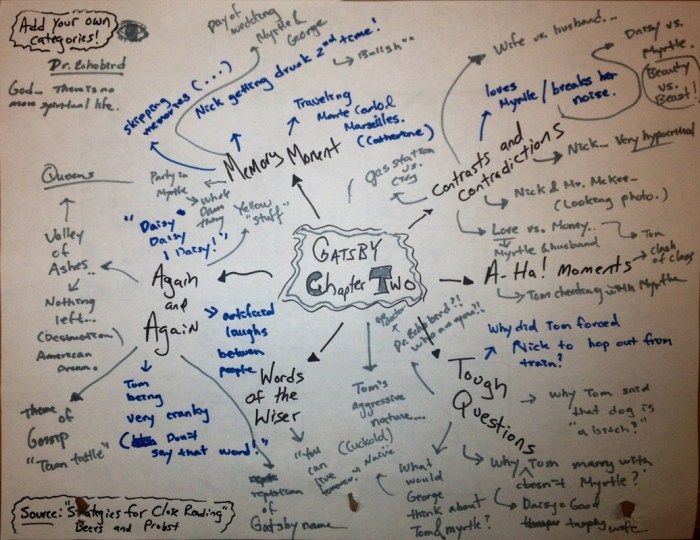 Add Your own
categories!
Dr. Echobird
God... There is no
more spiritual life.
day of
wedding
Myrtle &
George
→ Bullsh**
skipping
memories (...)
Nick getting drunk 2nd time!
Traveling
Monte Carlo &
Marseilles.
(Catherine)
Memory Moment
Wife vs. husband...
Daisy vs.
Myrtle.
Beauty
vs.
Beast!
loves
Myrtle / breaks her
noise.
Contrasts and
Contradictions
Nick... Very hypocritical
Nick & Mr. McKee...
(Looking photo.)
gas station
vs.
city
Love vs. Money...
Myrtle & husband
Tom
GATSBY
Chapter Two
A-Ha! Moments
clash
of class
Tom cheating with Myrtle
Queens
Valley
of
Ashes..
Nothing
left...
(Destruction)
American
Dream.
Party in
Myrtle
What
Damn
thing
Yellow
"stuff"
"Daisy
Daisy
Daisy!"
Again
and
Again
artificial
laughs
between
people
Tom
being
very cranky
( Don't
say that word!"
Theme of
Gossip
"Town tattle"
repetition
of
Gatsby name
Words
of the
Wiser
"You
can
live
Tom's
aggressive
nature...
(Cuckold)
Naïve
eye
doctor
Dr. Echoberd?!
Who are you?!
Tough
Questions
Why did Tom forced
Nick to hop out from
train?
Why Tom said
that dog is
"a bitch?"
Why Tom marry with
doesn't Myrtle?
Daisy = Good
trophy wife
What
would
George
think about
Tom & myrtle?
Source: "Strategies for Close Reading"
Beers and Probst